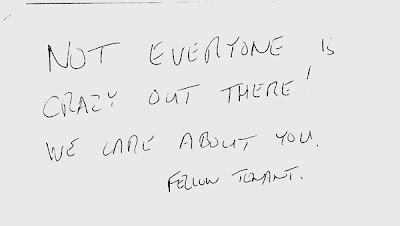 NOT EVERYONE IS
CRAZY OUT THERE!
WE CARE ABOUT YOU.
FELLOW TENANT.